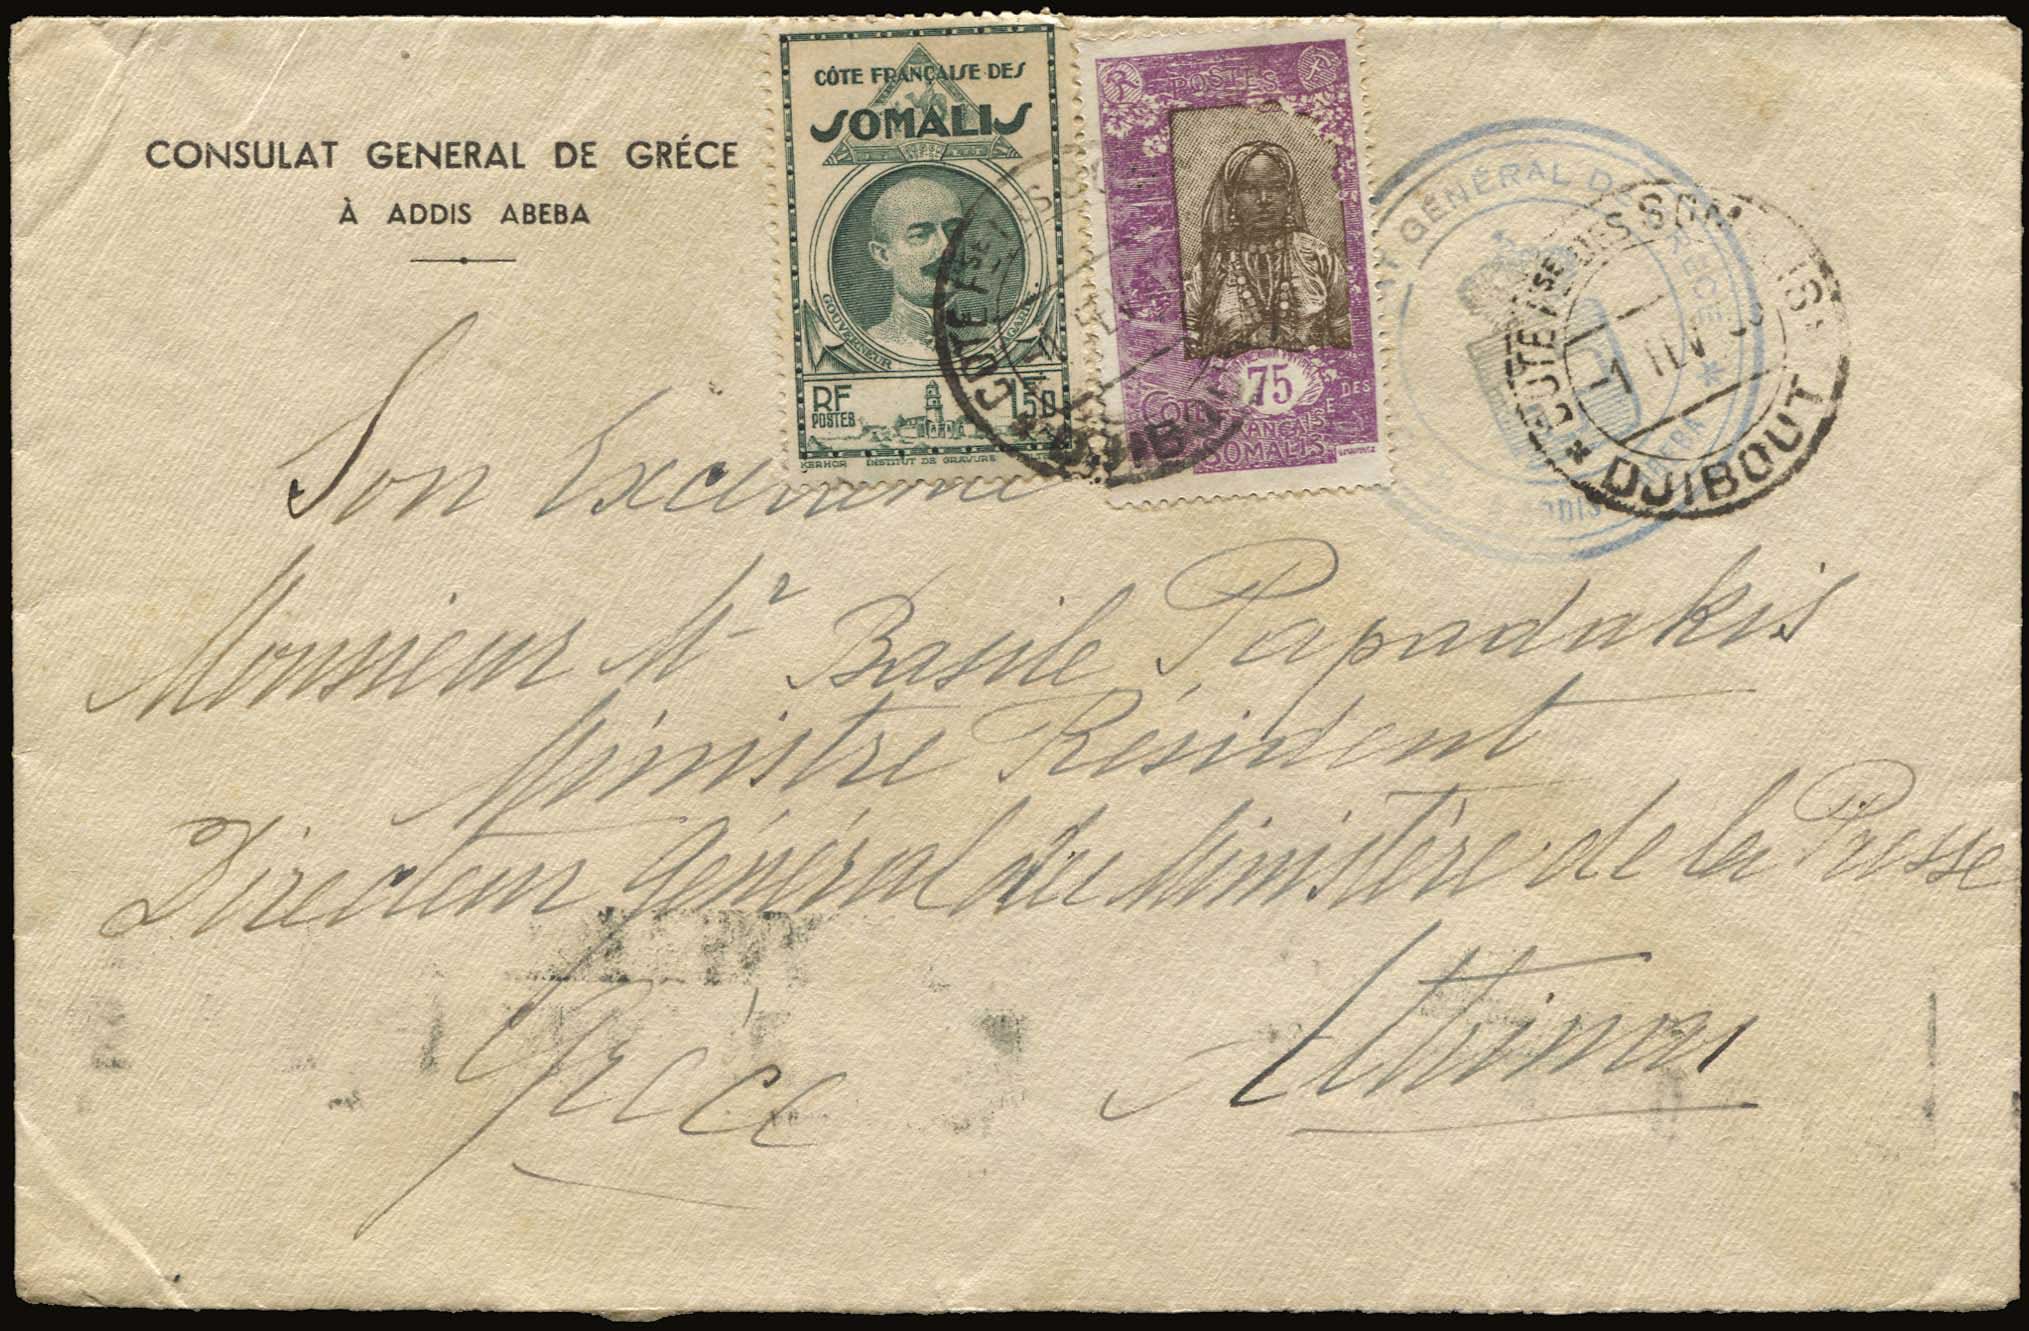 CONSULAT GENERAL DE GRÉCE
À ADDIS ABEBA
CÔTE FRANÇAISE DES
SOMALIS
GOUVERNEUR
RF
POSTES
1F50
KERHOR INSTITUT DE GRAVURE
POSTES
75
CÔTE FRANÇAISE DES
SOMALIS
GÉNÉRAL DE GRÈCE
COTE FSE DES SOMALIS
DJIBOUTI
COTE FSE DES SOMALIS
1 FEV
DJIBOUTI
Son Excellence
Monsieur Mr Basile Papadakis
Ministre Résident
Directeur Général du Ministère de la Presse
Grèce Athinai